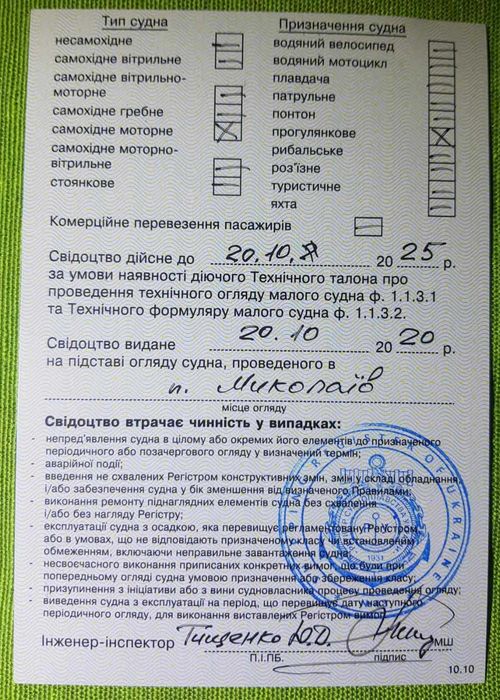 Тип судна
Призначення судна
несамохідне
водяний велосипед
самохідне вітрильне
водяний мотоцикл
самохідне вітрильно-
моторне
плавдача
патрульне
самохідне гребне
понтон
самохідне моторне
прогулянкове
самохідне моторно-
вітрильне
рибальське
роз'їзне
стоянкове
туристичне
яхта
Комерційне перевезення пасажирів
Свідоцтво дійсне до 20.10. 20 25 р.
за умови наявності діючого Технічного талона про
проведення технічного огляду малого судна ф. 1.1.3.1
та Технічного формуляру малого судна ф. 1.1.3.2.
Свідоцтво видане 20.10 20 20 р.
на підставі огляду судна, проведеного в
п. Миколаїв
місце огляду
Свідоцтво втрачає чинність у випадках:
- непред'явлення судна в цілому або окремих його елементів до призначеного
періодичного або позачергового огляду у визначений термін;
- аварійної події;
- введення не схвалених Регістром конструктивних змін, змін у складі обладнання,
і/або забезпечення судна у бік зменшення від визначеного Правилами;
- виконання ремонту піднаглядних елементів судна без схвалення
і/або без нагляду Регістру;
- експлуатації судна з осадкою, яка перевищує регламентовану Регістром,
або в умовах, що не відповідають призначеному класу чи встановленим
обмеженням, включаючи неправильне завантаження судна;
- несвоєчасного виконання приписаних конкретних вимог, що були при
попередньому огляді судна умовою призначення або збереження класу;
- призупинення з ініціативи або з вини судновласника процесу проведення огляду;
- виведення судна з експлуатації на період, що перевищує дату наступного
періодичного огляду, для виконання виставлених Регістром вимог.
Інженер-інспектор Тищенко Ю.О. МШ
П.І.ПБ. підпис
10.10
OF UKRAINE
1931